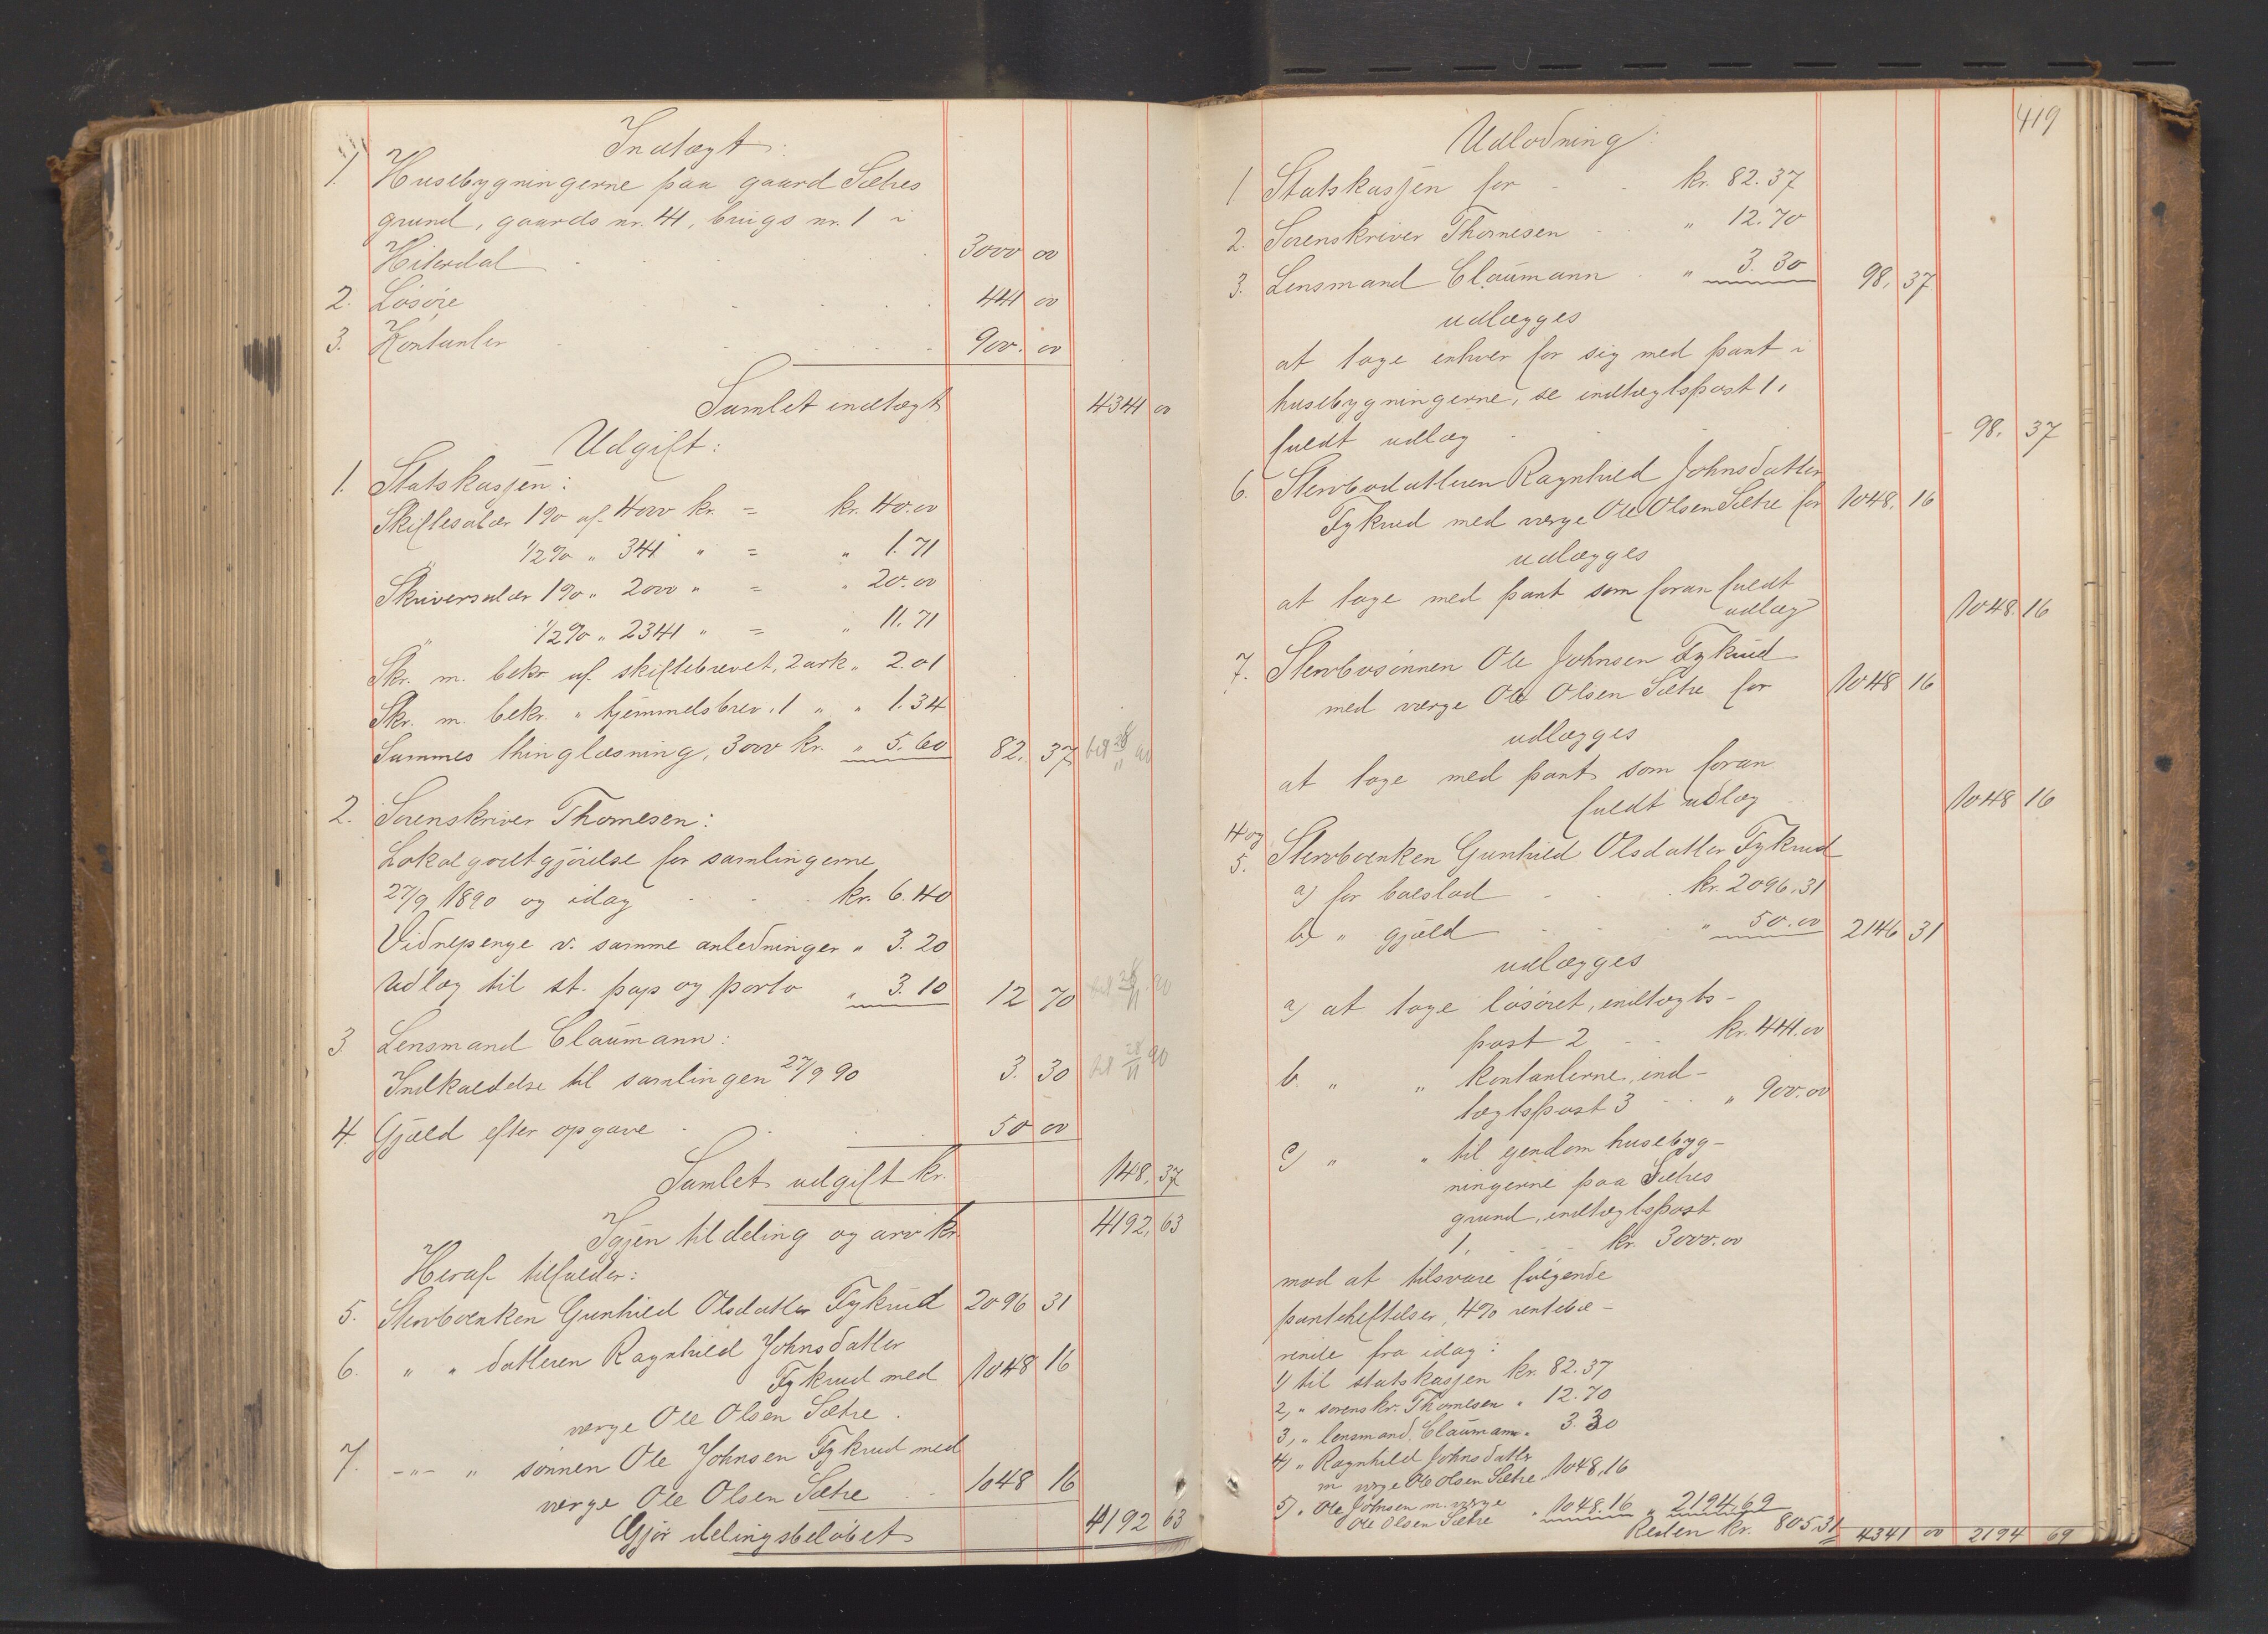 Indtægt:
1. Husebygningerne paa gaard Sætres
grund, gaards nr. 41, brugs nr. 1 i
Hiterdal . . . 3000 00
2. Løsøre . . . 441 00
3. Kontanter . . . 900. 00
Samlet indtægt 4341 00
Udgift:
1. Statskassen:
Skiftesalær 1% af 4000 kr. = kr. 40.00
" 1/2% " 341 " = " 1.71
Skriversalær 1% " 2000 " = " 20.00
" 1/2% " 2341 " = " 11.71
Skr. m. bekr. af skiftebrevet, 2 ark " 2.01
Skr. m. bekr. " hjemmelsbrev, 1 " " 1.34
Sammes thinglæsning, 3000 kr. " 5.60 82. 37 bet 28/11 90
2. Sorenskriver Thomesen:
Lokalgodtgjörelse for samlingerne
27/9 1890 og idag . . . kr. 6.40
Vidnepenge v. samme anledninger " 3.20
Udlæg til st. pap og porto " 3.10 12 70 bet 28/11 90
3 Lensmand Claümann:
Indkaldelse til samlingen 27/9 90 3. 30 bet 28/11 90
4. Gjæld efter opgave . . . 50 00
Samlet udgift kr. 148, 37
Igjen til deling og arv kr. 4192, 63
Heraf tilfalder:
5. Stervboenken Gunhild Olsdatter Fykrud 2096 31
6. " " datteren Ragnhild Johnsdatter
Fykrud med 1048 16
værge Ole Olsen Sætre.
7. -"- " sønnen Ole Johnsen Fykrud med
værge Ole Olsen Sætre . . 1048 16
Gjør delingsbeløbet 4192 63
419
Udlodning:
1 Statskassen for . . kr. 82.37
2. Sorenskriver Thomesen . " 12.70
3. Lensmand Claümann . " 3.30 98, 37
udlægges
at tage enhver for sig med pant i
husebygningerne, se indtægtspost 1,
fuldt udlæg . . . 98. 37
6. Stervbodatteren Ragnhild Johnsdatter
Fykrud med værge Ole Olsen Sætre for 1048, 16
udlægges
at tage med pant som foran fuldt
udlæg 1048. 16
7. Stervbosønnen Ole Johnsen Fykrud
med værge Ole Olsen Sætre for 1048 16
udlægges
at tage med pant som foran
fuldt udlæg 1048 16
4 og
5. Stervboenken Gunhild Olsdatter Fykrud
a) for boeslod . . . kr. 2096,31
b) " gjæld . . . " 50.00 2146 31
udlægges
a) at tage løsøret, indtægts-
post 2 . . kr. 441.00
b. " " kontanterne, ind-
tægtspost 3 . . " 900.00
c) " " til eiendom husebyg-
ningerne paa Sætres
grund, indtægtspost
1, . . . kr. 3000.00
mod at tilsvare følgende
panteheftelser, 4% rentebæ-
rende fra idag:
1) til statskassen kr. 82.37
2, " sorenskr. Thomesen " 12.70
3, " lensmand Claümann " 3.30
4) " Ragnhild Johnsdatter
m værge Ole Olsen Sætre 1048,16
5) " Ole Johnsen m. værge
Ole Olsen Sætre " 1048.16 " 2194,69
Resten kr. 805.31 4341 00 2194 69